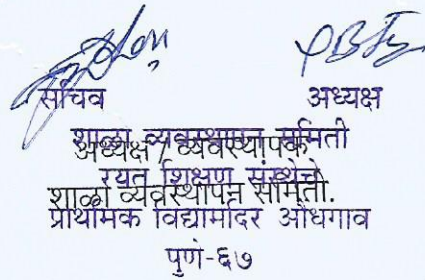 सचिव अध्यक्ष
शाळा व्यवस्थापन समिती
अध्यक्ष / व्यवस्थापक
रयत शिक्षण संस्थेचे
शाळा व्यवस्थापन समिती.
प्राथमिक विद्यामंदिर औंधगाव
पुणे-६७